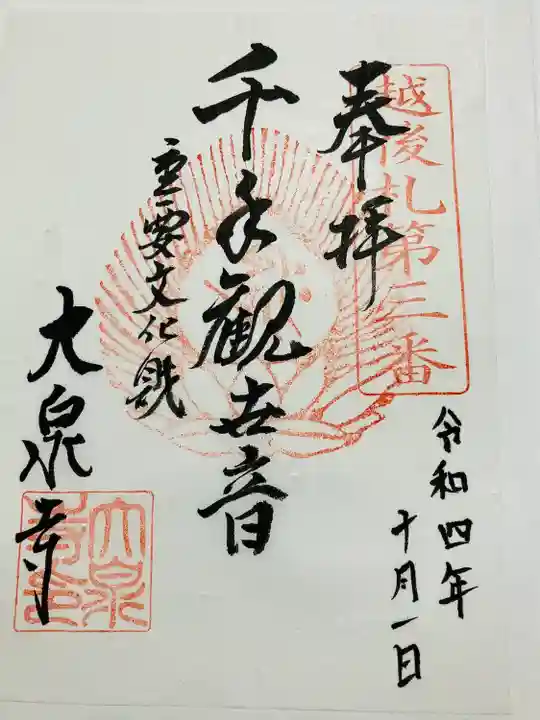 越後札第三番
奉拝
令和四年
十月一日
千手観世音
重要文化財
大泉寺
大泉寺印